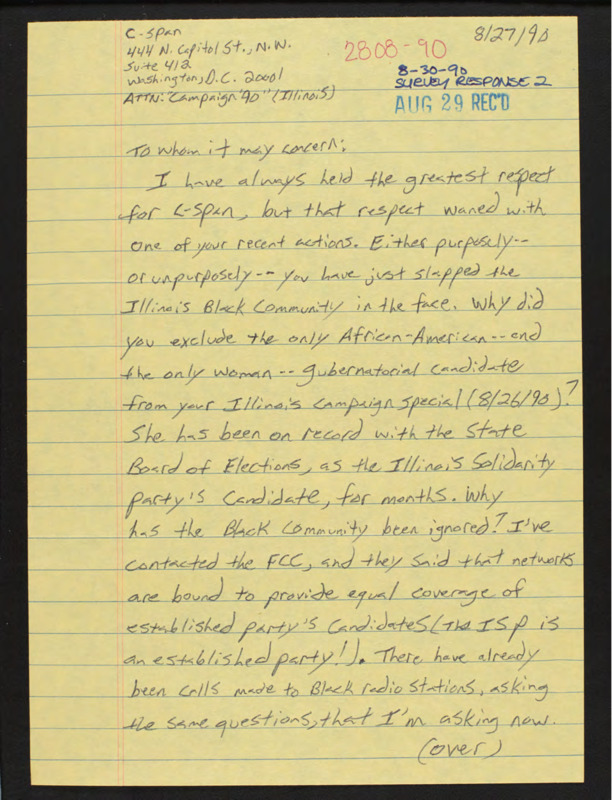 C-Span
444 N. Capitol St., N.W.
Suite 412
Washington, D.C. 20001
ATTN: "Campaign '90" (Illinois)
2808-90
8/27/90
8-30-90
SURVEY RESPONSE 2
AUG 29 REC'D
To whom it may concern:
I have always held the greatest respect
for C-Span, but that respect waned with
one of your recent actions. Either purposely--
or unpurposely-- you have just slapped the
Illinois Black Community in the face. Why did
you exclude the only African-American -- and
the only woman -- gubernatorial candidate
from your Illinois campaign special (8/26/90)?
She has been on record with the State
Board of Elections, as the Illinois Solidarity
party's candidate, for months. Why
has the Black Community been ignored? I've
contacted the FCC, and they said that networks
are bound to provide equal coverage of
established party's candidates (The ISP is
an established party!). There have already
been calls made to Black radio stations, asking
the same questions, that I'm asking now.
(over)